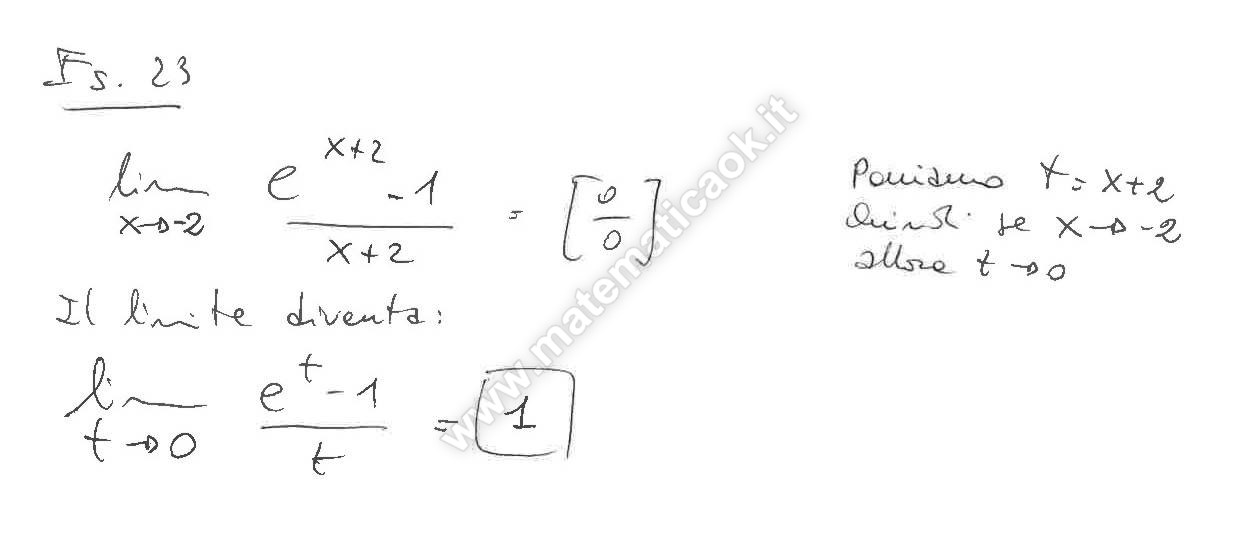 Es. 23
lim x→-2 (e^(x+2) - 1)/(x+2) = [0/0]
Poniamo t = x+2
Quindi se x→-2
allora t→0
Il limite diventa:
lim t→0 (e^t - 1)/t = 1
www.matematicaok.it